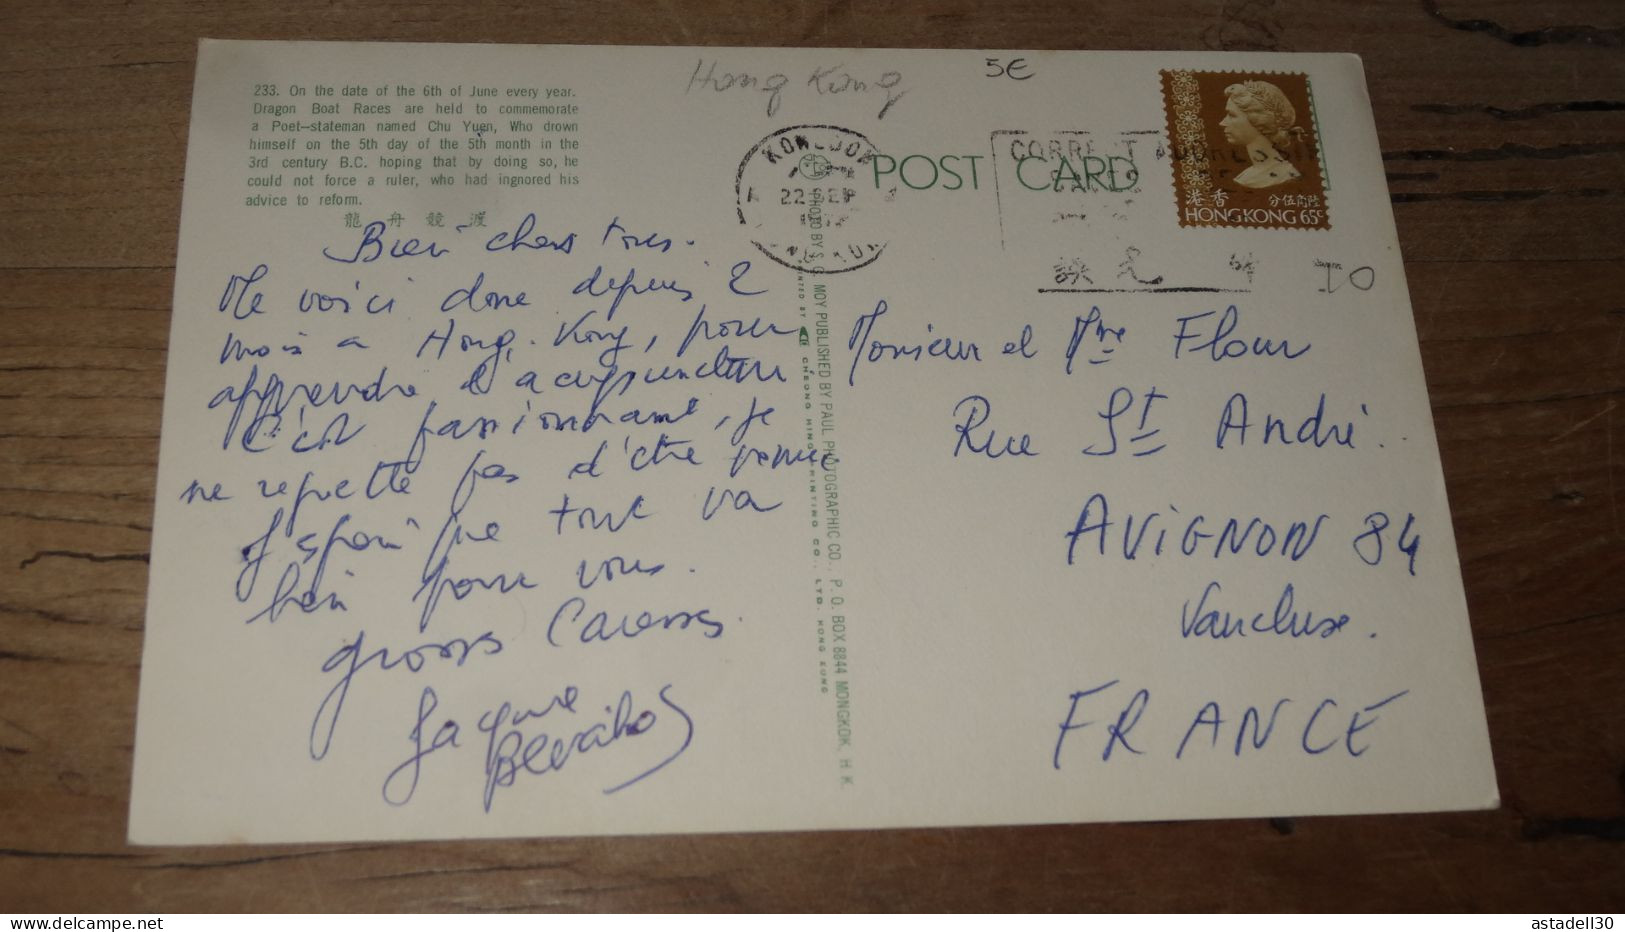 233. On the date of the 6th of June every year.
Dragon Boat Races are held to commemorate
a Poet—stateman named Chu Yuen, Who drown
himself on the 5th day of the 5th month in the
3rd century B.C. hoping that by doing so, he
could not force a ruler, who had ingnored his
advice to reform.
龍舟競渡
Hong Kong
5€
POST CARD
CORRECT ADDRESS
22 SEP
香港
HONG KONG 65c
Bien chers tous.
Me voici donc depuis 2
mois a Hong. Kong, pour
apprendre l'acupuncture
C'est passionnant, je
ne regrette pas d'être venue
J'espère que tout va
bien pour vous.
grosses Caresses.
Jacquie
PHOTO BY S.C. MOY PUBLISHED BY PAUL PHOTOGRAPHIC CO., P. O. BOX 8844 MONGKOK, H. K.
PRINTED BY CHEONG MING PRINTING CO., LTD. HONG KONG
Monsieur et Mme Flour
Rue St André.
AVIGNON 84
Vaucluse.
FRANCE
astadell30